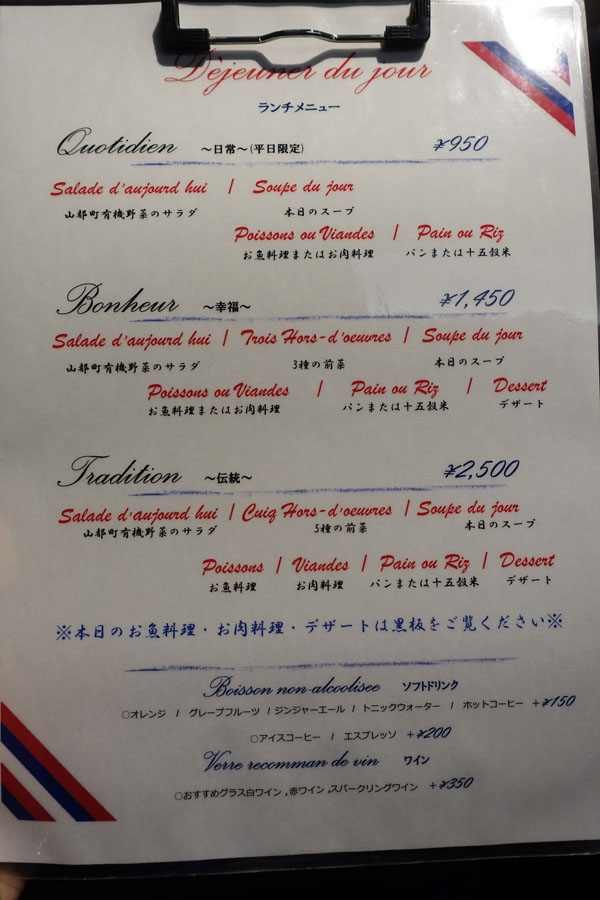 Déjeuner du jour
ランチメニュー
Quotidien ～日常～(平日限定) ¥950
Salade d'aujourd hui | Soupe du jour
山都町有機野菜のサラダ 本日のスープ
Poissons ou Viandes | Pain ou Riz
お魚料理またはお肉料理 パンまたは十五穀米
Bonheur ～幸福～ ¥1,450
Salade d'aujourd hui | Trois Hors-d'oeuvres | Soupe du jour
山都町有機野菜のサラダ 3種の前菜 本日のスープ
Poissons ou Viandes | Pain ou Riz | Dessert
お魚料理またはお肉料理 パンまたは十五穀米 デザート
Tradition ～伝統～ ¥2,500
Salade d'aujourd hui | Cuiq Hors-d'oeuvres | Soupe du jour
山都町有機野菜のサラダ 5種の前菜 本日のスープ
Poissons | Viandes | Pain ou Riz | Dessert
お魚料理 お肉料理 パンまたは十五穀米 デザート
※本日のお魚料理・お肉料理・デザートは黒板をご覧ください※
Boisson non-alcoolisee ソフトドリンク
○オレンジ / グレープフルーツ / ジンジャーエール / トニックウォーター / ホットコーヒー +¥150
○アイスコーヒー / エスプレッソ +¥200
Verre recomman de vin ワイン
○おすすめグラス白ワイン,赤ワイン,スパークリングワイン +¥350